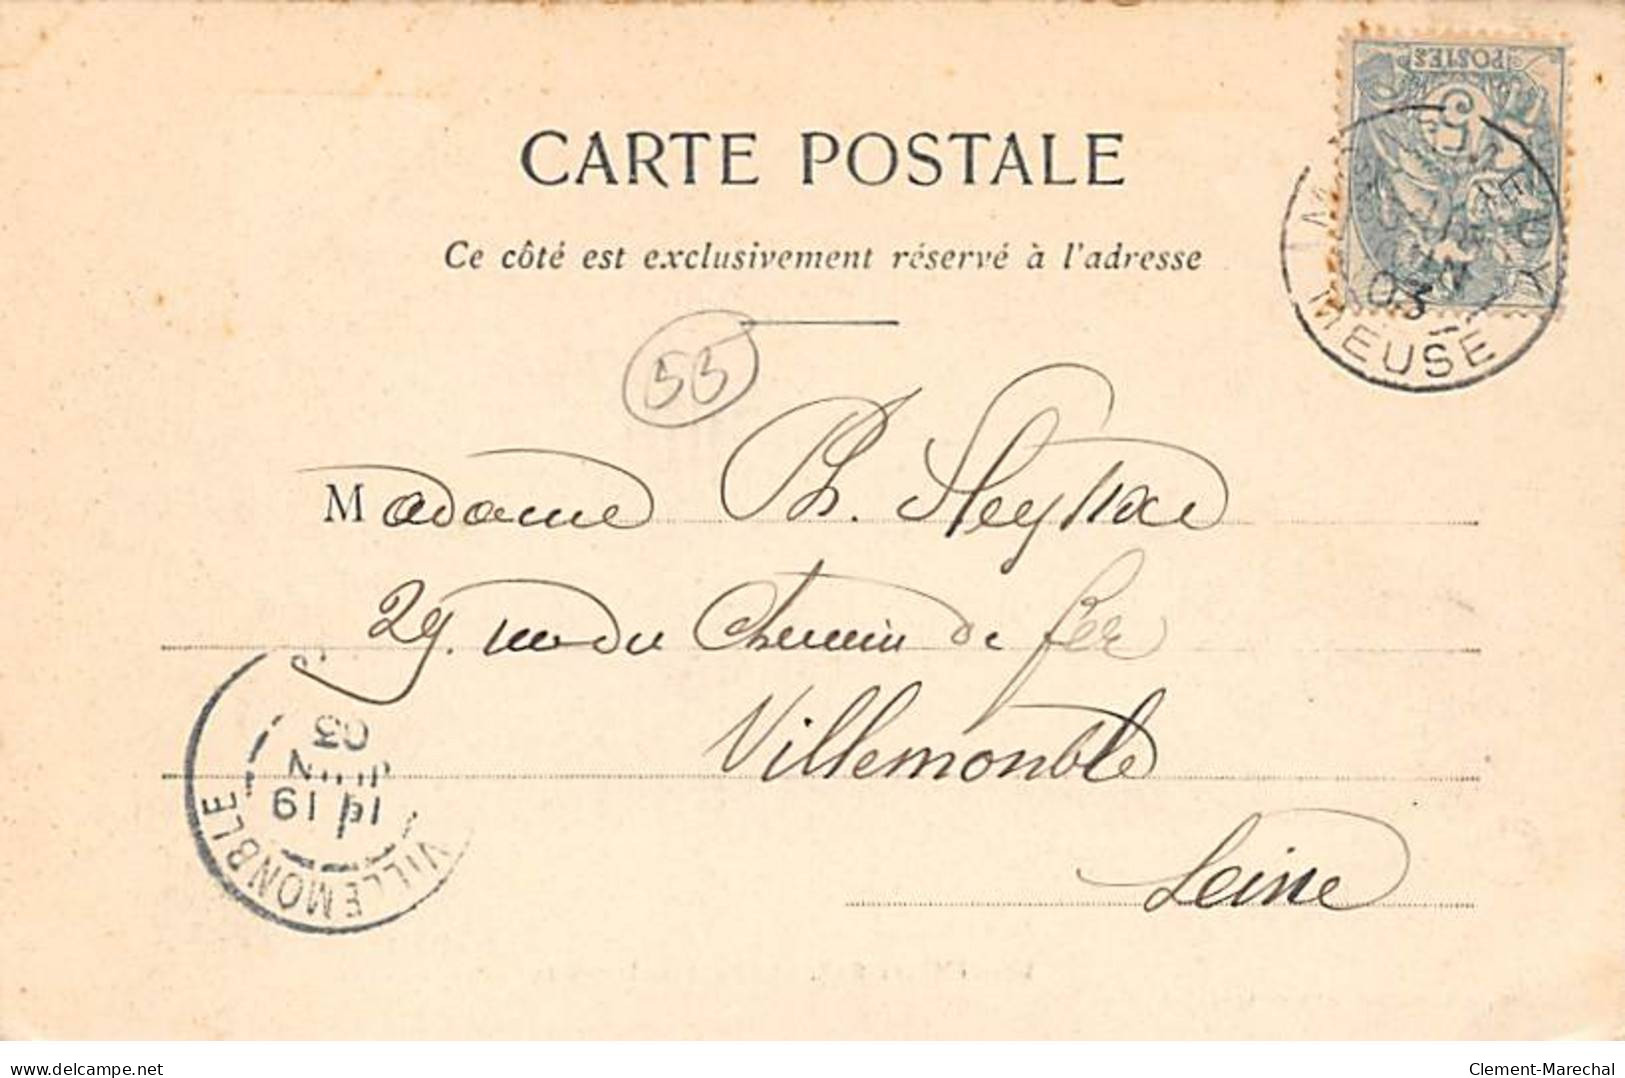 POSTES
5
CARTE POSTALE
Ce côté est exclusivement réservé à l'adresse
MEUSE
03
55
Madame Ph.
29. rue du Chemin de fer
Villemonble
Seine
VILLEMONBLE
19
JUIN
03
www.delcampe.net
Clement-Marechal